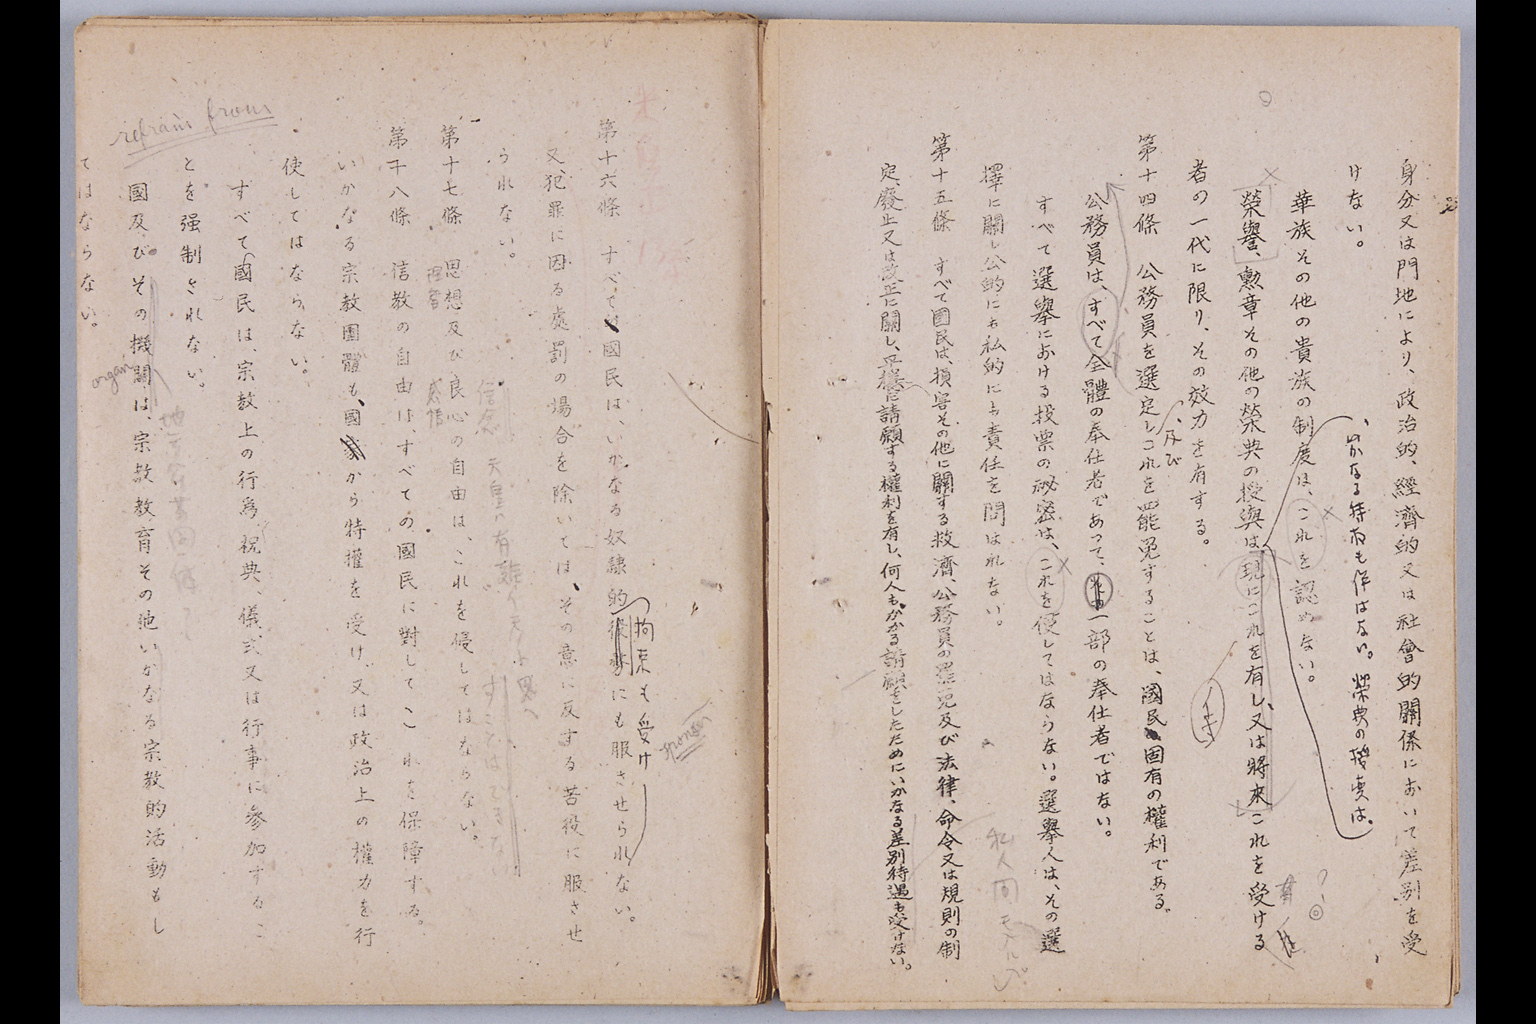 身分又は門地により、政治的、經濟的又は社會的關係において差別を受
けない。
、いかなる特權も伴はない。榮典の授與は、
華族その他の貴族の制度は、これを認めない。
榮譽、勲章その他の榮典の授與は、現にこれを有し、又は將來これを受ける
者の一代に限り、その效力を有する。
、及び
第十四條 公務員を選定しこれを罷免することは、國民固有の權利である。
公務員は、すべて全體の奉仕者であつて、一部の奉仕者ではない。
すべて選擧における投票の祕密は、これを侵してはならない。選擧人は、その選
擇に關し公的にも私的にも責任を問はれない。
私人間
第十五條 すべて國民は、損害その他に關する救濟、公務員の罷免及び法律、命令又は規則の制
定、廢止又は改正に關し、平穩に請願する權利を有し、何人もかかる請願をしたためにいかなる差別待遇も受けない。
sponsor
拘束も受け
第十六條 すべて國民は、いかなる奴隷的役務にも服させられない。
又、犯罪に因る處罰の場合を除いては、その意に反する苦役に服させ
られない。
信念
第十七條 思想及び良心の自由は、これを侵してはならない。
第十八條 信教の自由は、すべての國民に對してこれを保障する。
いかなる宗教團體も、國から特權を受け、又は政治上の權力を行
使してはならない。
すべて國民は、宗教上の行爲、祝典、儀式又は行事に參加するこ
とを强制されない。
refrain from
organ
國及びその機關は、宗敎敎育その他いかなる宗敎的活動もし
てはならない。